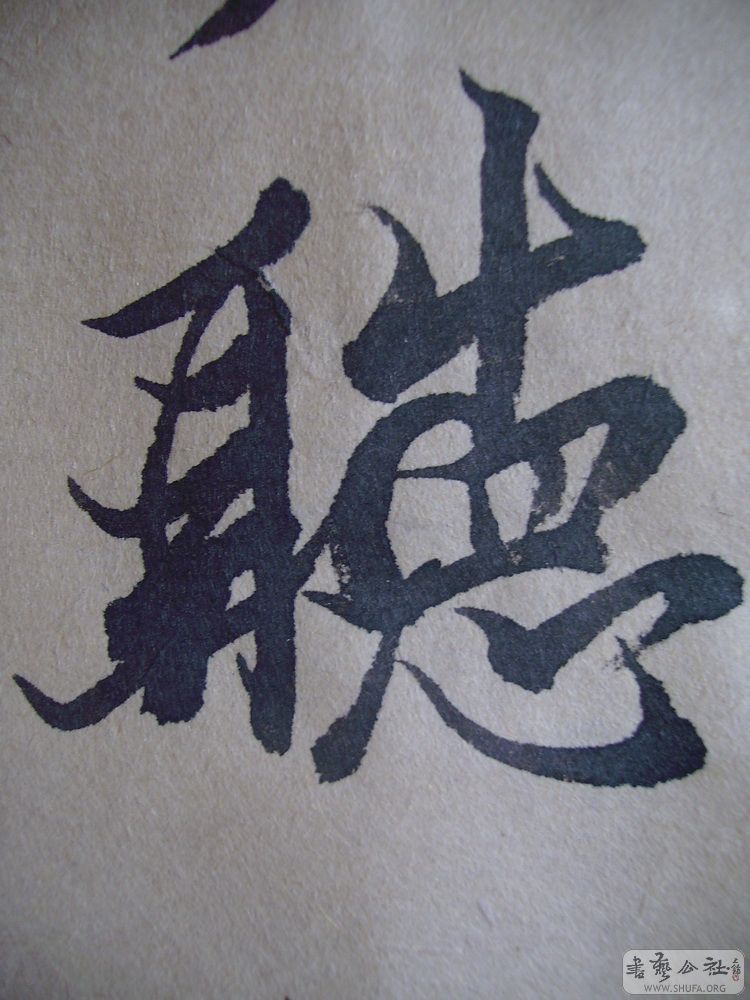 聽
書藝公社
WWW.SHUFA.ORG